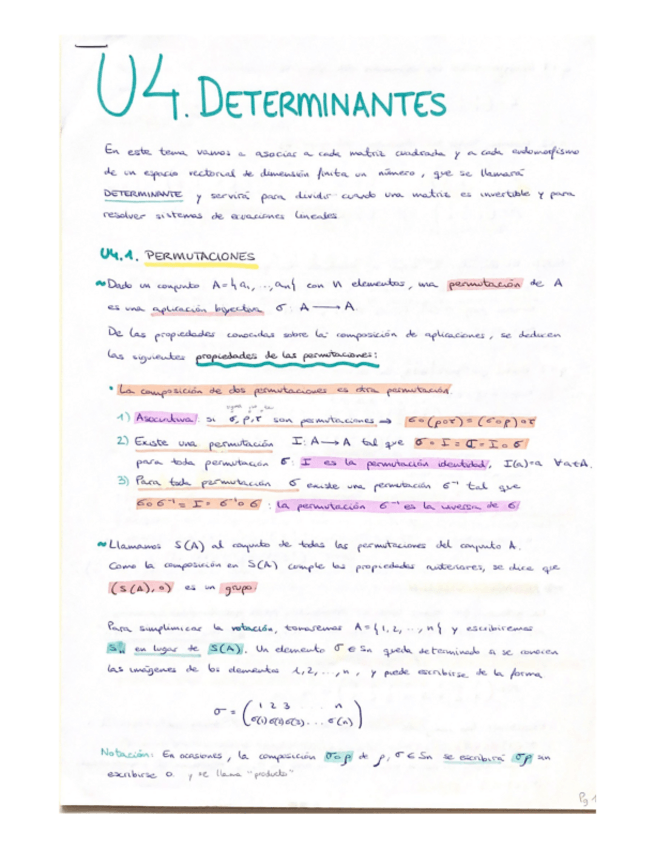 U4. DETERMINANTES
En este tema vamos a asociar a cada matriz cuadrada y a cada endomorfismo
de un espacio vectorial de dimensión finita un número, que se llamará
DETERMINANTE y servirá para dividir cuando una matriz es invertible y para
resolver sistemas de ecuaciones lineales
U4.1. PERMUTACIONES
~Dado un conjunto A={a₁, ..., aₙ} con n elementos, una permutación de A
es una aplicación biyectiva σ: A → A
De las propiedades conocidas sobre la composición de aplicaciones, se deducen
las siguientes propiedades de las permutaciones:
• La composición de dos permutaciones es otra permutación
1) Asociativa: si σ, ρ, τ son permutaciones ⇒ σo(ρoτ)=(σoρ)oτ
2) Existe una permutación I: A → A tal que σ = I = σ = I o σ
para toda permutación σ: I es la permutación identidad, I(a)=a ∀a∈A.
3) Para toda permutación σ existe una permutación σ⁻¹ tal que
σoσ⁻¹ = I = σ⁻¹oσ : la permutación σ⁻¹ es la inversa de σ
~Llamamos S(A) al conjunto de todas las permutaciones del conjunto A.
Como la composición en S(A) cumple las propiedades anteriores, se dice que
(S(A), o) es un grupo.
Para simplificar la notación, tomaremos A={1,2, ..., n} y escribiremos
Sₙ en lugar de S(A). Un elemento σ∈Sn queda determinado si se conocen
las imágenes de los elementos 1,2, ..., n, y puede escribirse de la forma
σ = ( 1 2 3 n
σ(1) σ(2) σ(3) ... σ(n) )
Notación: En ocasiones, la composición σoρ de ρ,σ∈Sn se escribirá σρ sin
escribirse o y se llama "producto"
Pg 1